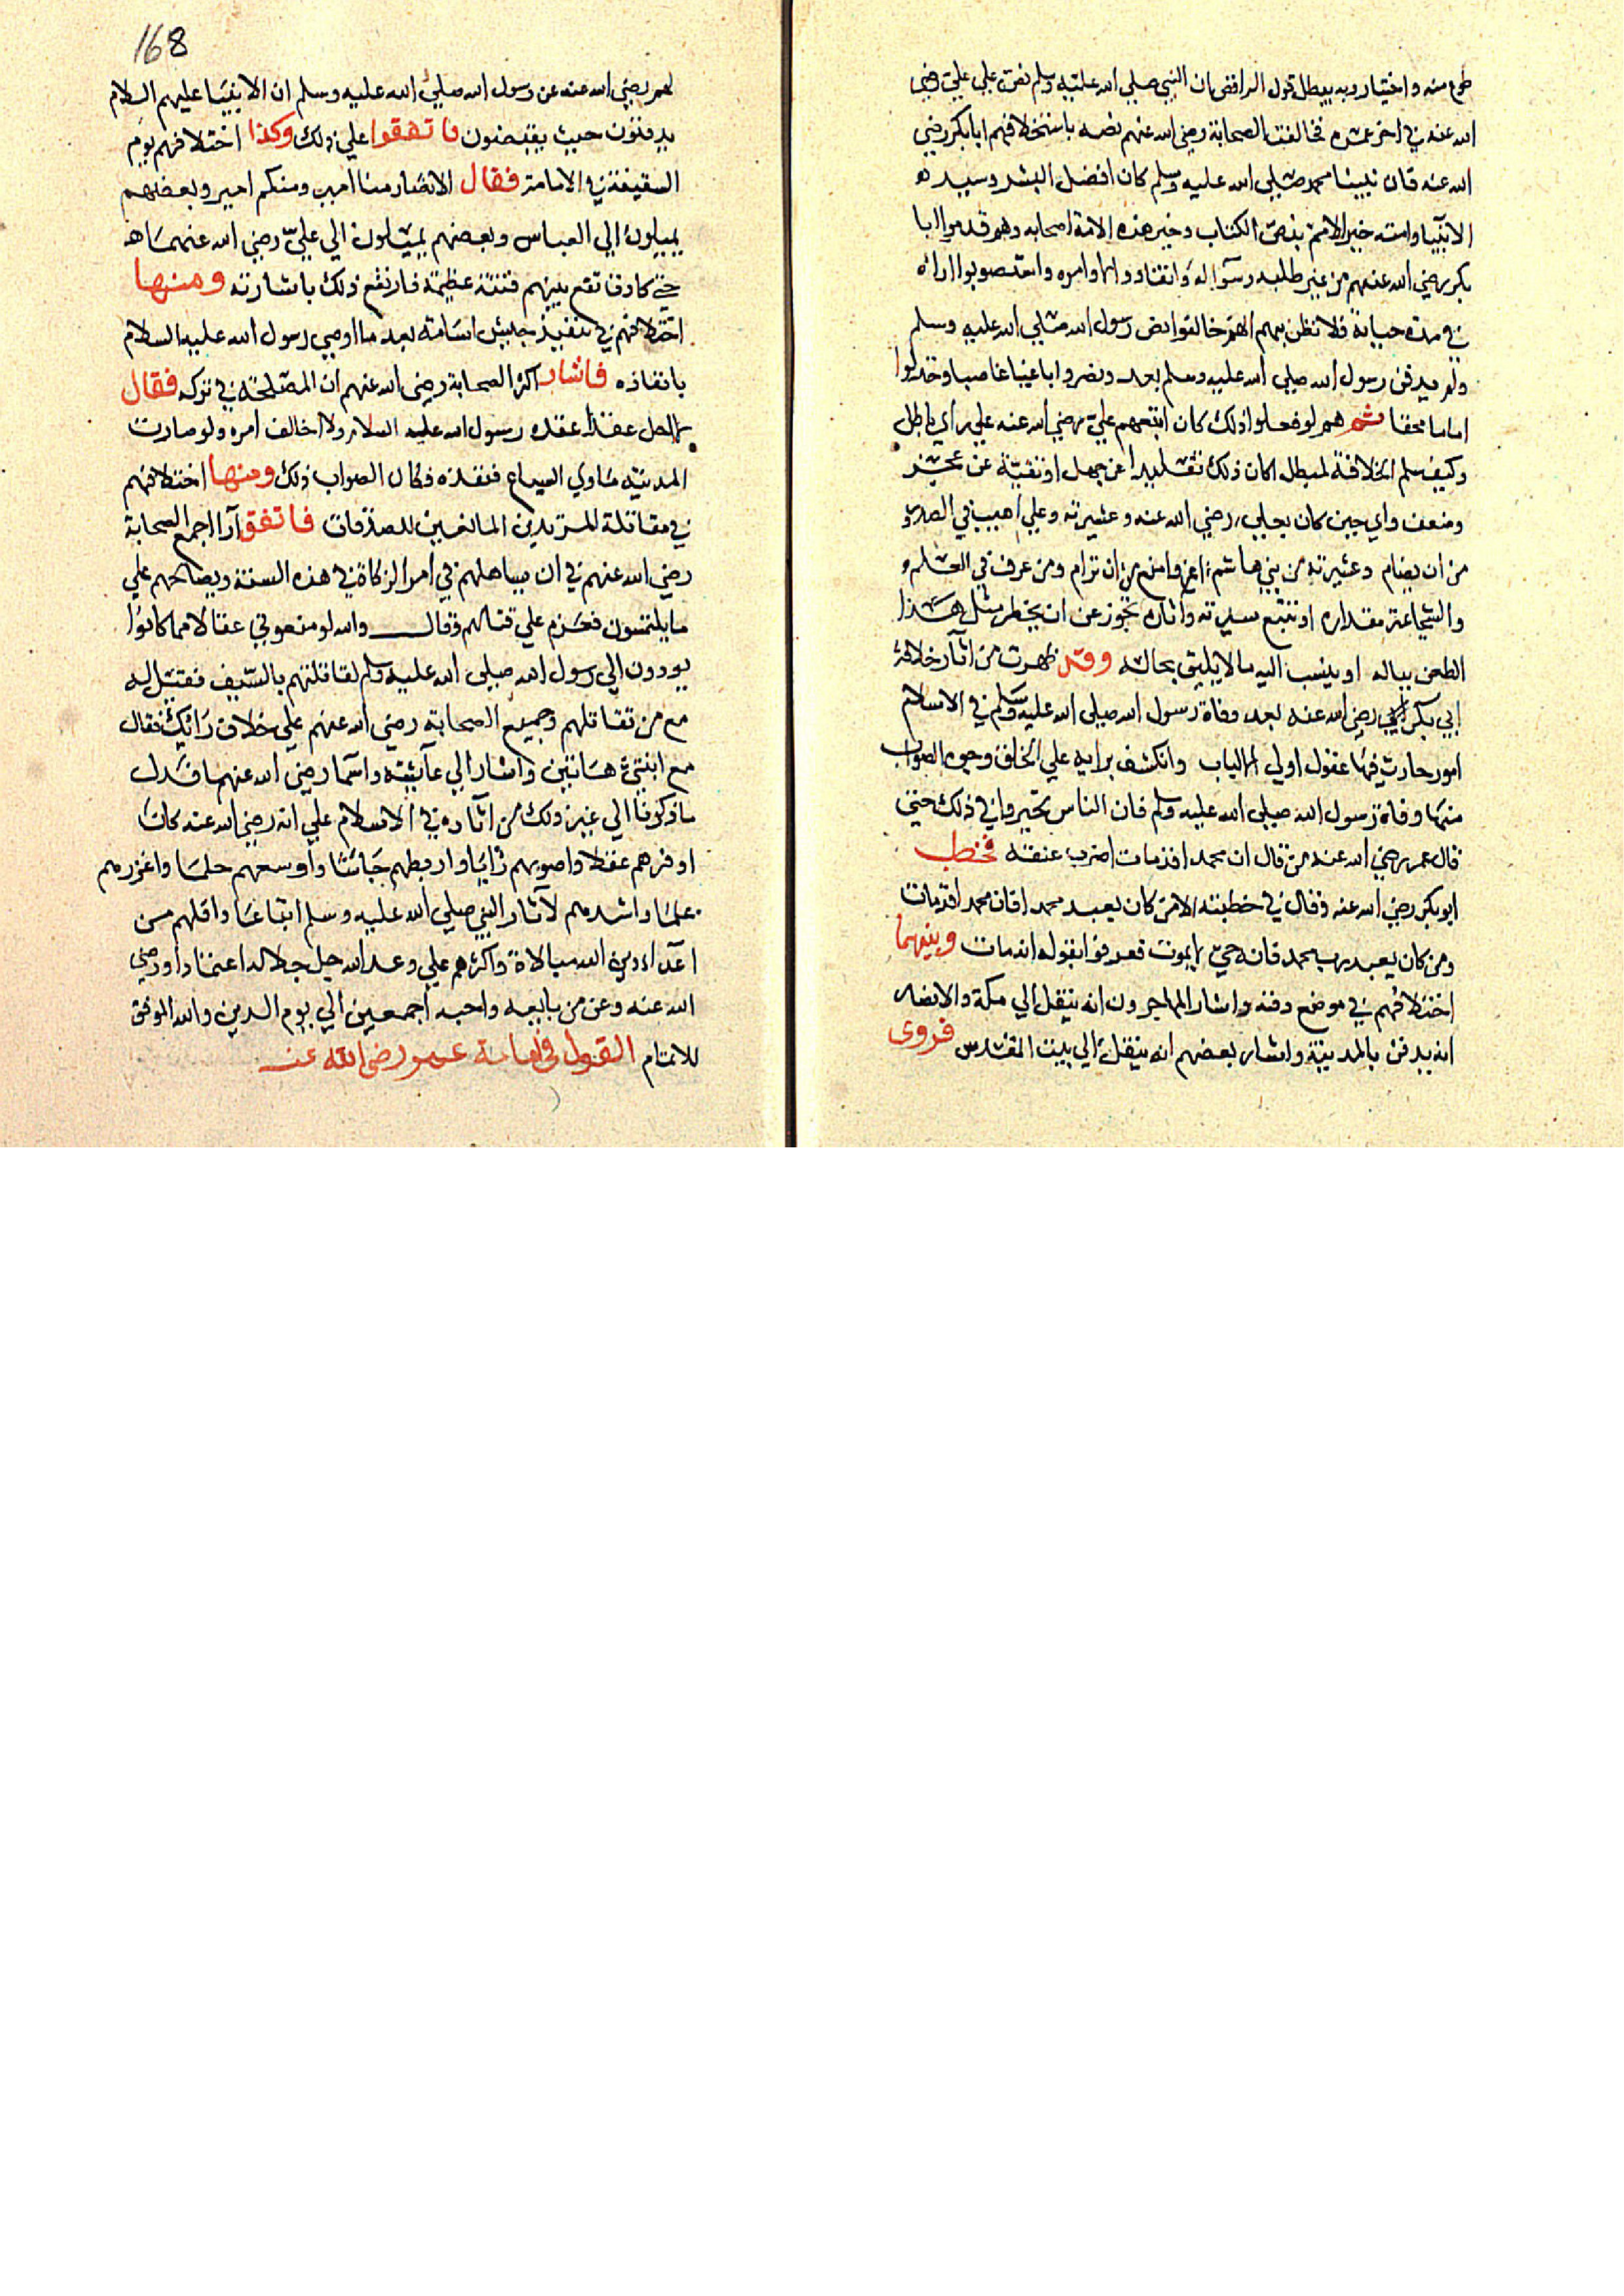 طوع منه واختيار وبه يبطل قول الرافضي ان النبي صلي الله عليه وسلم نص علي علي رضي
الله عنه في اخر عمره فخالفت الصحابة رضي الله عنهم نصه باستخلافهم ابا بكر رضي
الله عنه فان نبينا محمد صلي الله عليه وسلم كان افضل البشر وسيد
الانبيا وامته خير الامم بنص الكتاب وخير هذه الامة اصحابه وهم قدموا ابا
بكر رضي الله عنهم من غير طلبه وسؤاله وانقادوا لاوامره واستصوبوا اراه
في مدة حياته فلا نظن بهم انهم خالفوا نص رسول الله صلي الله عليه وسلم
ولم يدفن رسول الله صلي الله عليه وسلم بعد ونصروا باغيا غاصبا وخذلوا
اماما محقا ثم هم لو فعلوا ذلك كان اتبعهم علي رضي الله عنه علي راي باطل
وكيف سلم الخلافة لمبطل اكان ذلك تقليدا عن جهل او تقية عن عجز
وضعف واي جبن كان بعلي رضي الله عنه وعشيرته وعلي اهيب في الصدور
من ان يضام وعشيرته من بني هاشم اعز وامنع من ان ترام ومن عرف في العلم و
والشجاعة مقداره او تتبع سيرته واثاره تجوز عن ان يخطر مثل هذا
الطعن بباله او ينسب اليه ما لا يليق بحاله وقد ظهرت من اثار خلافة
ابي بكر رضي الله عنه بعد وفاة رسول الله صلي الله عليه وسلم في الاسلام
امور حارت فيها عقول اولي الالباب وانكشف برايه علي الخلق وجوه الصواب
منها وفاة رسول الله صلي الله عليه وسلم فان الناس تحيروا في ذلك حتي
قال عمر رضي الله عنه من قال ان محمدا قد مات اضرب عنقه فخطب
ابو بكر رضي الله عنه وقال في خطبته الا من كان يعبد محمدا فان محمدا قد مات
ومن كان يعبد رب محمد فانه حي لا يموت فعرفوا بقوله انه مات ومنها
اختلافهم في موضع دفنه واشار المهاجرون انه ينقل الي مكة والانصار
انه يدفن بالمدينة واشار بعضهم انه ينقل الي بيت المقدس فروى
168
لهم رضي الله عنه عن رسول الله صلي الله عليه وسلم ان الانبيا عليهم السلام
يدفنون حيث يقبضون فاتفقوا علي ذلك وكذا اختلافهم يوم
السقيفة في الامامة فقال الانصار منا امير ومنكم امير وبعضهم
يميلون الي العباس وبعضهم يميلون الي علي رضي الله عنهما
حتي كادت تقع بينهم فتنة عظيمة فارتفع ذلك باشارته ومنها
اختلافهم في تنفيذ جيش اسامة بعد ما اوصي رسول الله عليه السلام
بانفاذه فاشار اكثر الصحابة رضي الله عنهم ان المصلحة في تركه فقال
لا احل عقدا عقده رسول الله عليه السلام ولا اخالف امره ولو صارت
المدينة ماوي السباع فنفذه فكان الصواب ذلك ومنها اختلافهم
في مقاتلة المرتدين المانعين للصدقات فاتفق آراا جمع الصحابة
رضي الله عنهم في ان يساهلهم في امر الزكاة في هذه السنة ويصالحهم علي
ما يلتمسون فعزم علي قتالهم وقال والله لو منعوني عقالا مما كانوا
يودون الي رسول الله صلي الله عليه وسلم لقاتلتهم بالسيف فقيل له
مع من تقاتلهم وجميع الصحابة رضي الله عنهم علي خلاف رايك فقال
مع ابنتي هاتين واشار الي عايشة واسما رضي الله عنهما فدل
ما ذكرنا الي غير ذلك من اثاره في الاسلام علي انه رضي الله عنه كان
اوفرهم عقلا واصوبهم رايا واربطهم جاشا واوسعهم حلما واغزرهم
علما واشدهم لآثار النبي صلي الله عليه وسلم اتباعا واقلهم من
اعداء دين الله مبالاة واكثرهم علي وعد الله جل جلاله اعتمادا ورضي
الله عنه وعن من بايعه واحبه اجمعين الي يوم الدين والله الموفق
للاتمام القول في امامة عمر رضي الله عنه